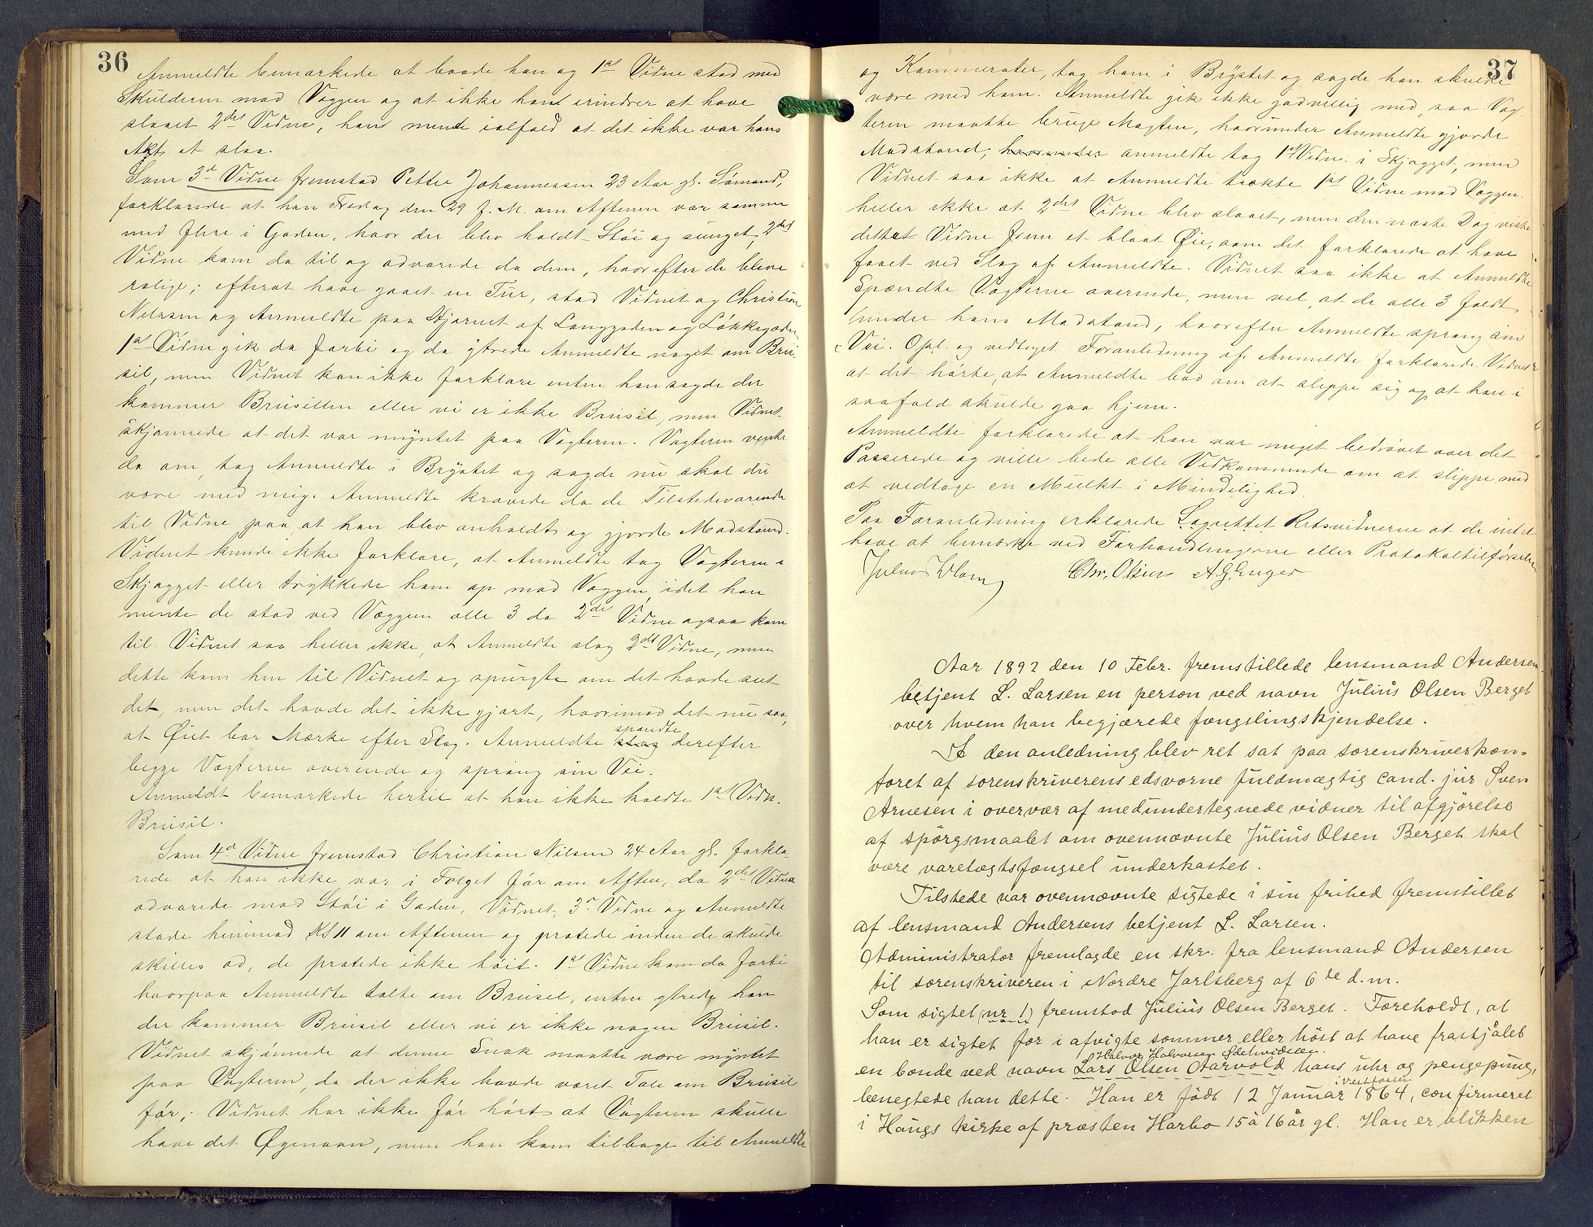 36
Anmeldte bemærkede at baade han og 1ste Vidne stod med
Skulderen mod Væggen og at ikke han erindrer at have
slaaet 2det Vidne, han mente ialfald at det ikke var hans
Agt at slaa.
Som 3die Vidne fremstod Petter Johannessen 23 Aar gl. Sømand,
forklarede at han Fredag den 29 f. M. om Aftenen var sammen
med Flere i Gaden, hvor der blev holdt Støi og sunget; 2det
Vidne kom da til og advarede da dem, hvorefter de bleve
rolige; efterat have gaaet en Tur, stod Vidnet og Christian
Nilsen og Anmeldte paa Hjørnet af Langgaden og Løkkegaden
1ste Vidne gik da forbi og da ytrede Anmeldte noget om Brusil
sil, men Vidnet kan ikke forklare enten han sagde der
kommer Brusillen eller vi er ikke Brusil, men Vidnet
skjønnede at det var myntet paa Vagteren. Vagteren vendte
da om, tog Anmeldte i Brystet og sagde nu skal du
være med mig. Anmeldte krævede da de Tilstedeværende
til Vidne paa at han blev anholdt og gjorde Modstand.
Vidnet kunde ikke forklare, at Anmeldte tog Vagteren i
Skjægget eller trykkede ham op mod Væggen, idet han
mente de stod ved Væggen alle 3 da 2det Vidne ogsaa kom
til. Vidnet saa heller ikke, at Anmeldte slog 2det Vidne, men
dette kom hen til Vidnet og spurgte om det havde seet
det, men det havde det ikke gjort, hvorimod det nu saa,
at Øiet bar Mærke efter Slag. Anmeldte slog spændte derefter
begge Vagterne overende og sprang sin Vei.
Anmeldt bemærkede hertil at han ikke kaldte 1ste Vidne
Brusil.
Som 4de Vidne fremstod Christian Nilsen 24 Aar gl. forkla-
rede at han ikke var i Følget før om Aften, da 2det Vidne
advarede mod Støi i Gaden. Vidnet, 3die Vidne og Anmeldte
stode henimod Kl 11 om Aftenen og pratede inden de skulde
skilles ad, de pratede ikke høit. 1ste Vidne kom da forbi
hvorpaa Anmeldte talte om Brusil, enten ytrede han
der kommer Brusil eller vi er ikke nogen Brusil.
Vidnet skjønnede at denne Snak maatte være myntet
paa Vagteren, da der ikke havde været Tale om Brusil
før; Vidnet har ikke før hørt at Vagteren skulle
have det Øgenavn, men han kom tilbage til Anmeldte
37
og Kammerater, tog ham i Brystet og sagde han skulde
være med ham. Anmeldte gik ikke godvillig med, saa Vag-
teren maatte bruge Magten, hvorunder Anmeldte gjorde
Modstand; hvorunder anmeldte tog 1ste Vidne i Skjægget, men
Vidnet saa ikke at Anmeldte trykte 1ste Vidne mod Væggen
heller ikke at 2det Vidne blev slaaet, men den næste Dag viste
dettet Vidne frem et blaat Øie, som det forklarede at have
faaet ved Slag af Anmeldte. Vidnet saa ikke at Anmeldte
spændte Vagterne overende, men vel, at de alle 3 faldt
under hans Modstand, hvorefter Anmeldte sprang sin
Vei. Opl. og vedtaget. Foranledning af Anmeldte forklarede Vidnet
at det hørte, at Anmeldte bad om at slippe sig og at han i
saafald skulde gaa hjem.
Anmeldte forklarede at han var meget bedrøvet over det
Passerede og ville bede alle Vedkommende om at slippe med
at vedtage en Mulkt i Mindelighed.
Paa Foranledning erklærede Lagrettet Retsvidnerne at de intet
have at bemærke ved Forhandlingerne eller Protokoltilførselen
Julius Chr. Olsen A. G. Enger
Aar 1892 den 10 Febr. fremstillede lensmand Andersens
betjent L. Larsen en person ved navn Julius Olsen Berget
over hvem han begjærede fængslingskjendelse.
I den anledning blev ret sat paa sorenskriverkon-
toret af sorenskriverens edsvorne fuldmægtig cand. jur Sven
Arnesen i overvær af medundertegnede vidner til afgjørelse
af spørgsmaalet om ovennævnte Julius Olsen Berget skal
være varetægtsfængsel underkastet.
Tilstede var ovennævnte sigtede i sin frihed fremstillet
af lensmand Andersens betjent L. Larsen.
Administrator fremlagde en skr. fra lensmand Andersen
til sorenskriveren i Nordre Jarlsberg af 6te d.m.
Som sigtet (nr 1) fremstod Julius Olsen Berget. Foreholdt, at
han er sigtet for i afvigte sommer eller høst at have frastjålet
Halvor Halvorsen Skelvidåen
en bonde ved navn Lars Olsen Aarvold hans uhr og pengepung,
i Vestfossen
benegtede han dette. Han er født 12 Januar 1864, confirmeret
i Haugs kirke af præsten Harbo 15 à 16 år gl. Han er blikken